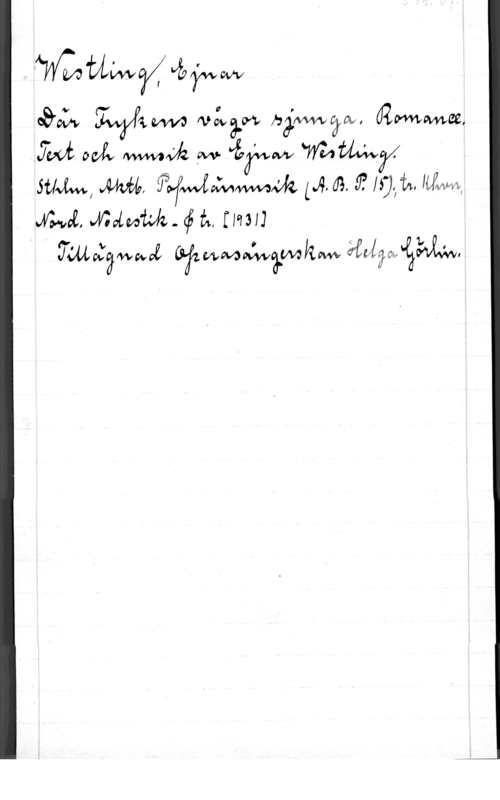 Westling, Ejnar
Där Frykens vågor sjunga. Romance.
Text och musik av Ejnar Westling.
Sthlm, Aktb. Populärmusik (A. B. P. 15), tr. Khvn,
Nord. Nodestik- & tr. [1931]
Tillägnad Operasångerskan Helga Görlin.